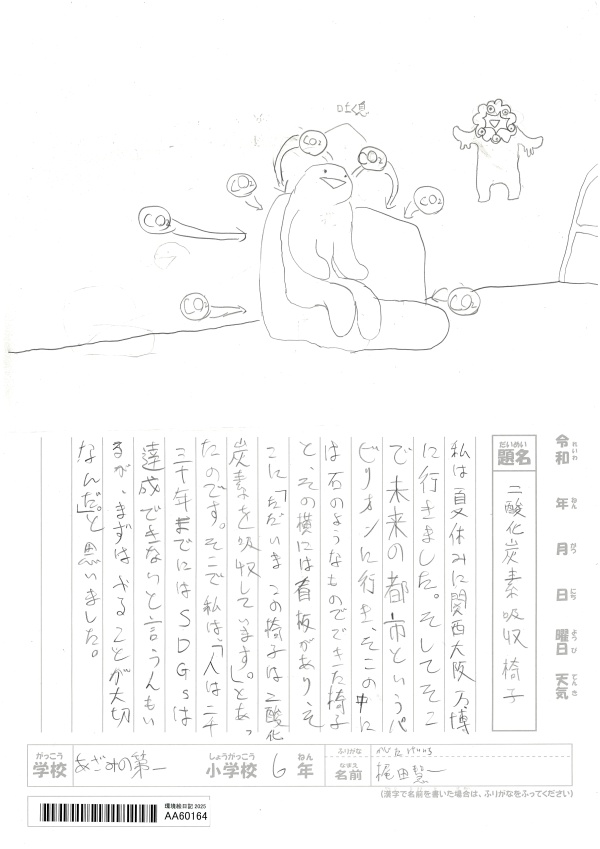 吐く息
CO₂
CO₂
CO₂
CO₂
CO₂
CO₂
CO₂
れいわ
令和
ねん
年
がつ
月
にち
日
ようび
曜日
てんき
天気
だいめい
題名
二酸化炭素吸収椅子
私は夏休みに関西大阪万博
に行きました。そしてそこ
で未来の都市というパ
ビリオンに行き、そこの中に
は石のようなものでできた椅子
と、その横には看板がありそ
こに「ただいまこの椅子は二酸化
炭素を吸収しています。」とあっ
たのです。そこで私は、「人は二千
三十年までにはSDGsは
達成できないと言うんもい
るが、まずはやることが大切
なんだ。」と思いました。
がっこう
学校
あざみの第一
しょうがっこう
小学校
6
ねん
年
ふりがな
なまえ
名前
梶田慧一
(漢字で名前を書いた場合は、ふりがなをふってください)
環境絵日記2025
AA60164